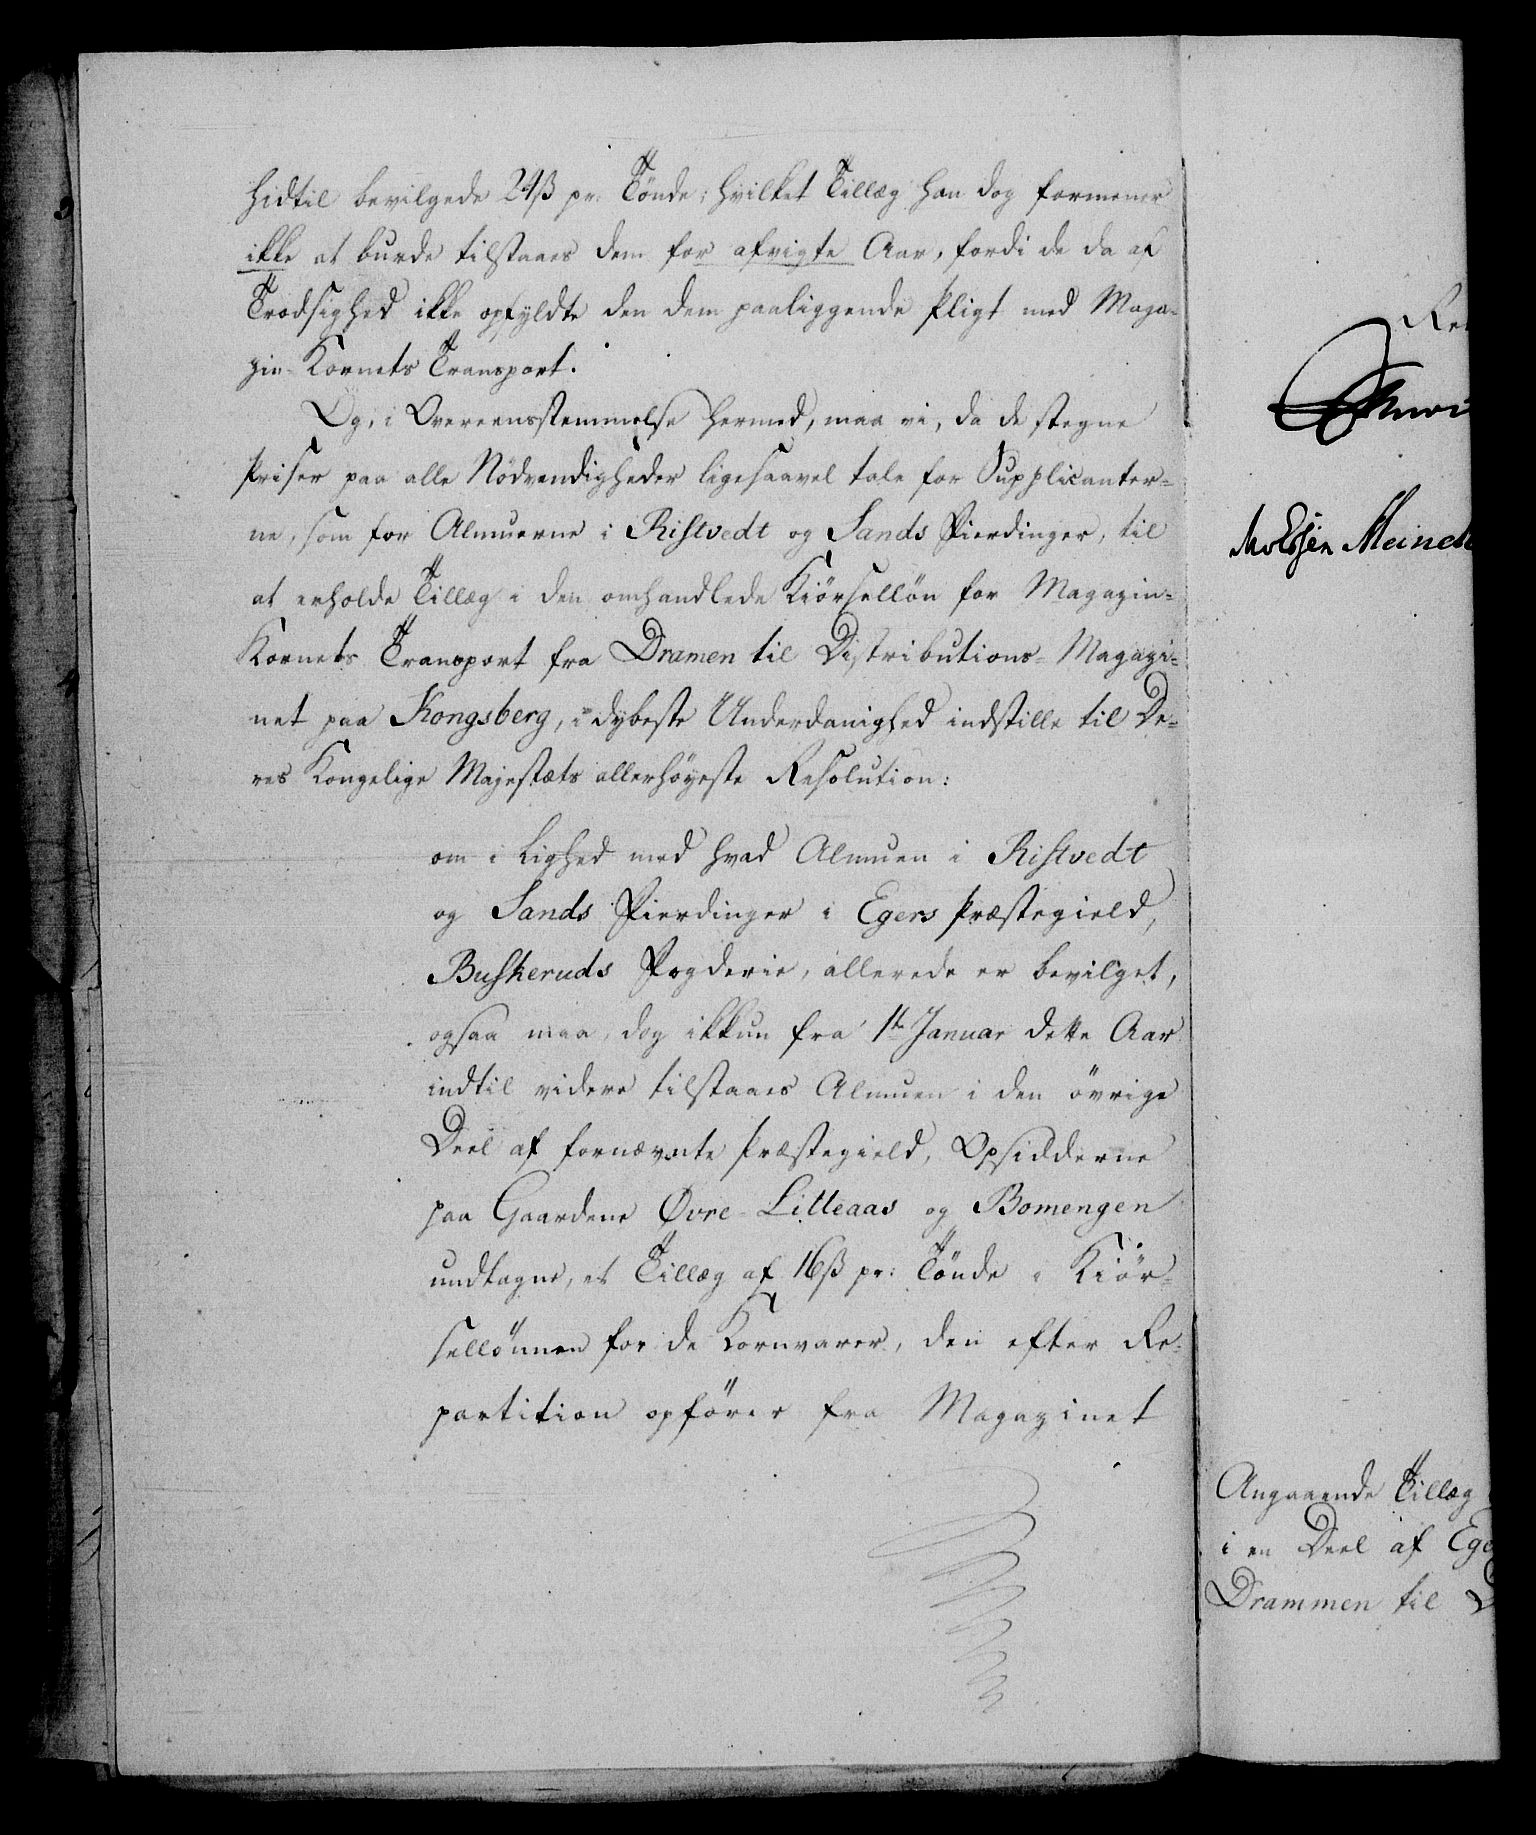 hidtil bevilgede 24ß pr. Tönde; hvilket Tillæg han dog formener
ikke at burde tilstaaes dem for afvigte Aar, fordi de da af
Trodsighed ikke opfyldte den dem paaliggende Pligt med Maga-
zin-Kornets Transport.
Og, i Overeensstemmelse hermed, maa vi, da de stegne
Priser paa alle Nödvendigheder ligesaavel tale for Supplicanter=
ne, som for Almuerne i Ristvedt og Sands Fierdinger, til
at erholde Tillæg i den omhandlede Kiörsellön for Magazin=
Kornets Transport fra Dramen til Distributions-Magazi-
net paa Kongsberg, i dybeste Underdanighed indstille til De=
res Kongelige Majestæts allerhöyeste Resolution:
om i Lighed med hvad Almuen i Ristvedt
og Sands Fierdinger i Egers Præstegield,
Buskeruds Fogderie, allerede er bevilget,
ogsaa maa, dog ikkun fra 1te Januar dette Aar
indtil videre tilstaaes Almuen i den övrige
Deel af fornævnte Præstegield, Opsidderne
paa Gaardene Øvre-Litleaas og Bomengen
undtagne, et Tillæg af 16ß pr: Tönde i Kiör-
sellönnen for de Kornvarer, den efter Re-
partition opförer fra Magazinet
Meinck
Angaaende Tillæg
i en Deel af Ege
Drammen til D